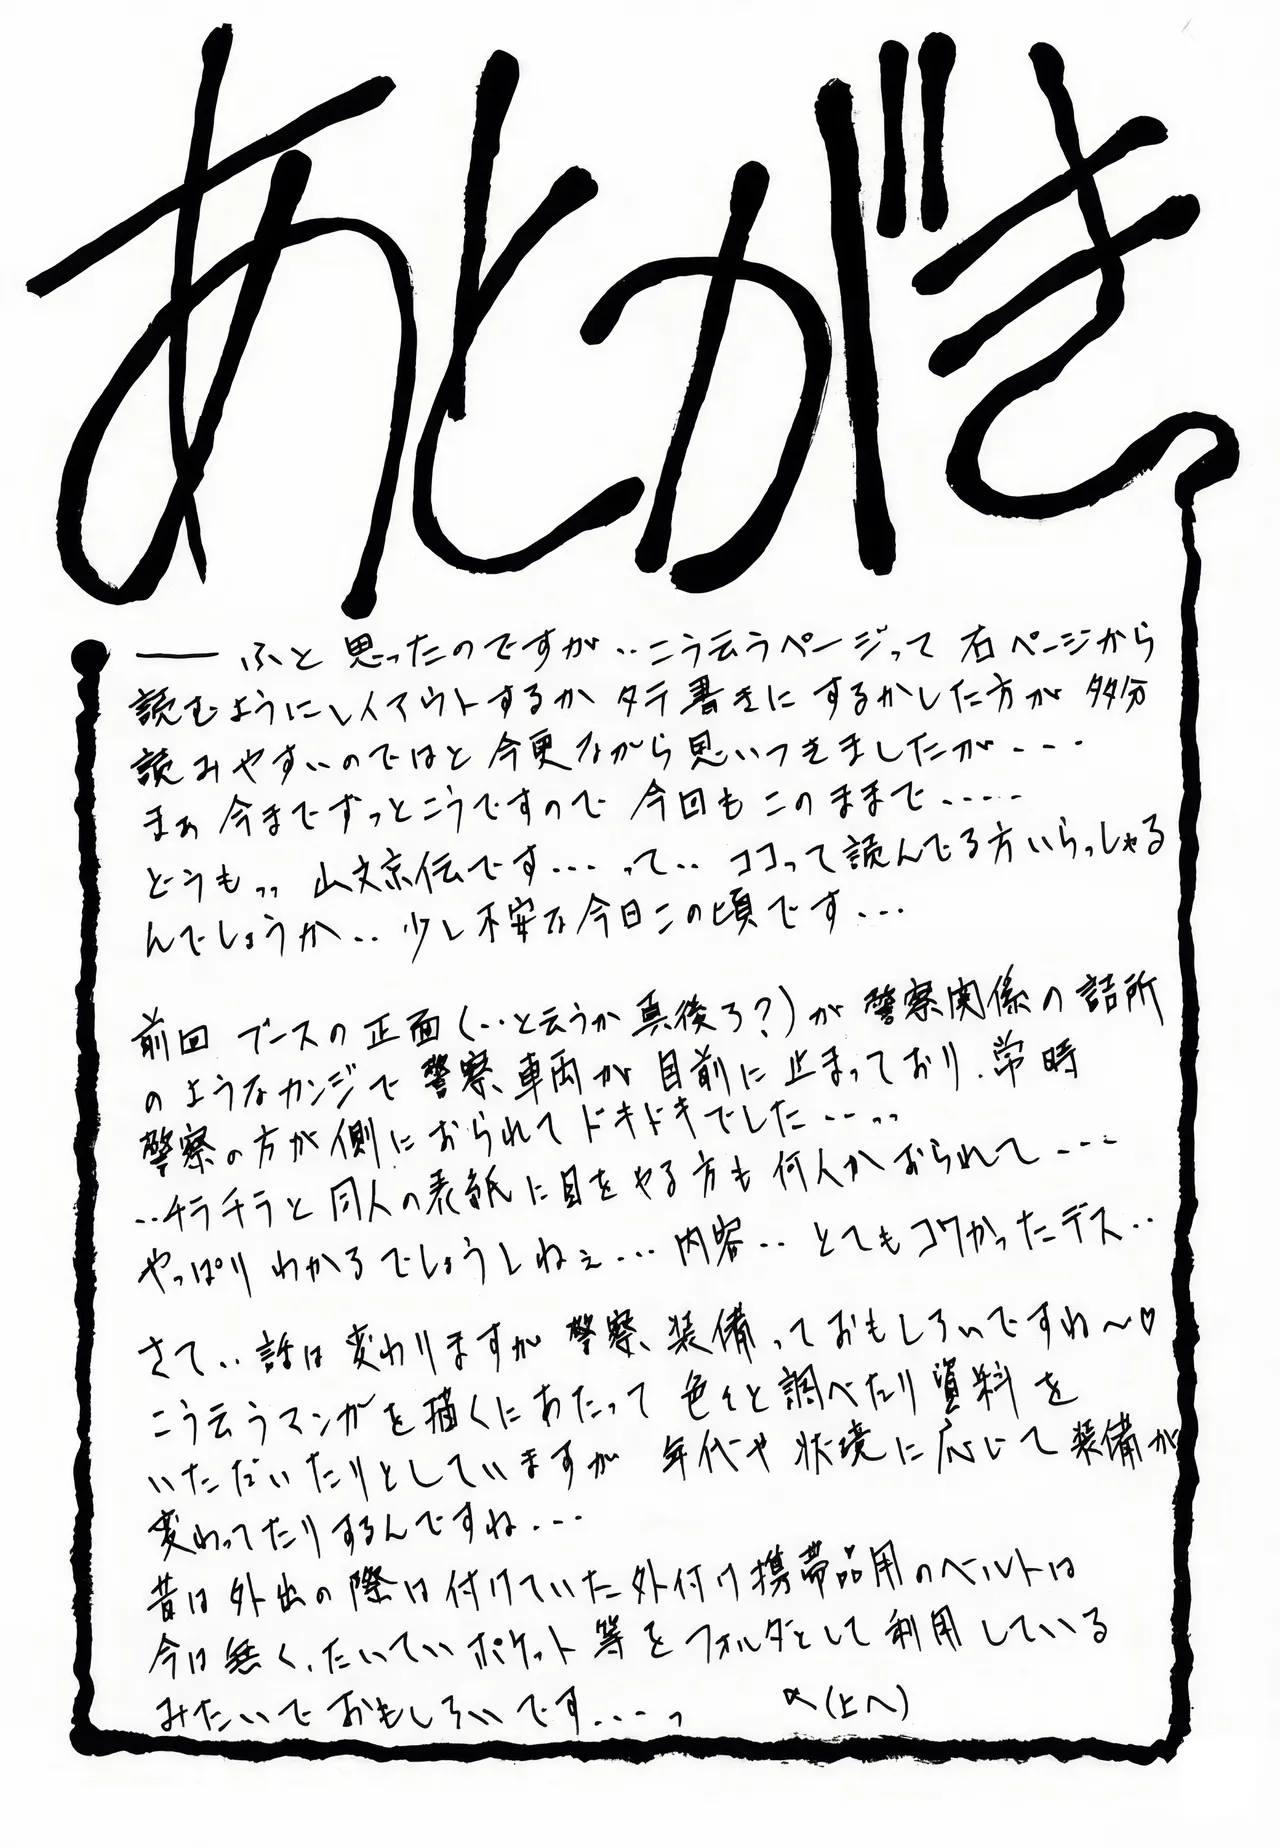 あとがき
── ふと思ったのですが‥こう云うページって 右ページから
読むようにレイアウトするか タテ書きに するかした方が 多分
読みやすいのではと 今更ながら思いつきましたが・・・
まぁ 今までずっとこうですので 今回も このままで・・・・・
どうもっっ 山文京伝です・・・って‥ ココって読んでる方いらっしゃる
んでしょうか‥ 少し不安な今日この頃です・・・
前回 ブースの正面(‥と云うか真後ろ?)が 警察関係の詰所
のようなカンジで 警察車両が目前に止まっており、常時
警察の方が側におられてドキドキでした・・・っっ
‥チラチラと同人の表紙に目をやる方も何人かおられて・・・
やっぱりわかるでしょうしねぇ・・・内容‥ とてもコワかったデス‥
さて‥話は変わりますが 警察装備っておもしろいですね〜♡
こう云うマンガを描くにあたって 色々と調べたり資料を
いただいたりとしていますが 年代や状境に応じて装備が
変わってたりするんですね・・・
昔は外出の際は付けていた外付け携帯品用のベルトは
今は無く、たいていポケット等をフォルダとして利用している
みたいでおもしろいです・・・っ
(上へ)